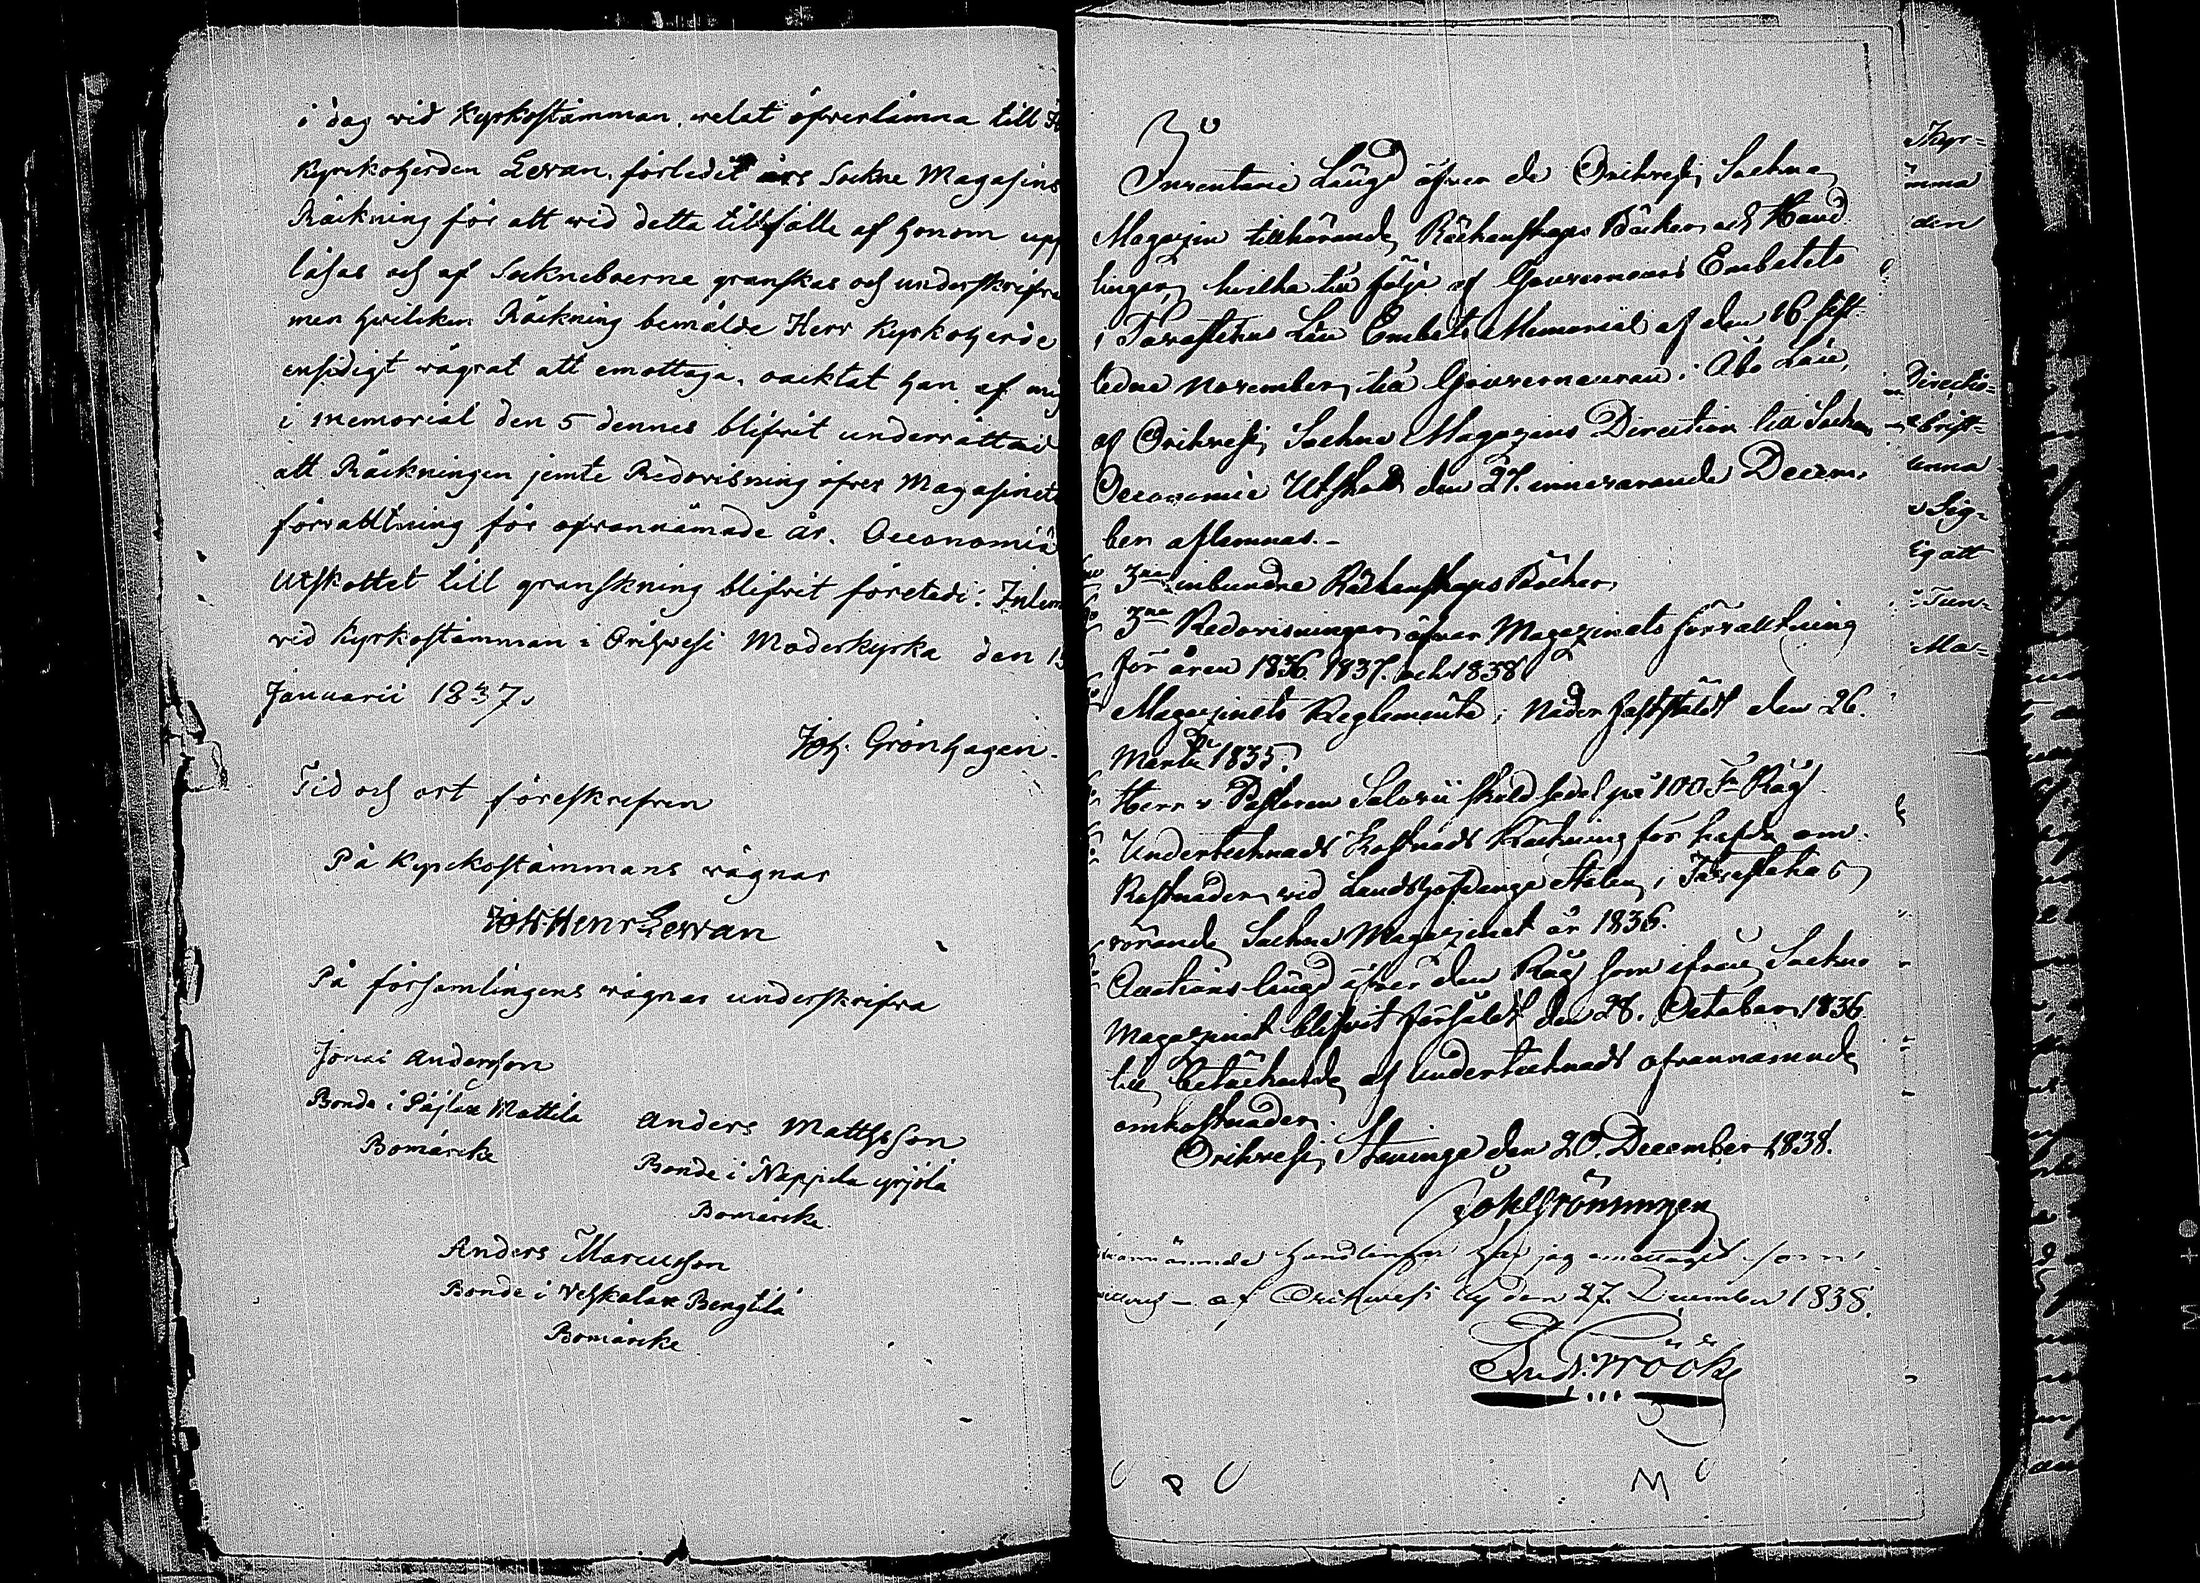 i dag vid Kyrkostämman, velat öfverlämna till H
Kyrckoherden Levan, förledit års Sockne Magasins
Räckning för att wid detta tillfälle af honom upp
läsas och af Sockneboerne granskas och underskrifva
men hvilcken Räckning bemälde Herr Kyrkoherde
ensidigt vägrat att emottaga, oacktat han af mig
i memorial den 5 dennes blifvit underrättad
att Räckningen jemte Redovisning öfver Magasinets
förvalltning för ofvannämnde år, Oeconomiæ
Utskottet till granskning blifvit företedt: Inlem
vid Kyrkostämman i Orihvesi Moderkyrka den 15
Januarii 1837.
Joh. Grönhagen.
Tid och ort föreskrefven
På Kyrckostämmans vägnar
Joh: Henr Levvan
På församlingens vägnar underskrifva
Jonai Andersson
Bonde i Päjlax Mattila
Bomärcke
Anders Mattsson
Bonde i Näppila yrjölä
Bomärcke.
Anders Marcusson
Bonde i Veskalax Bengtilä
Bomärcke
Inventarie Längd öfver de Orihvesi Sockne
Magazin tillhörande Räkenskaps Böcker och Hand
lingar, hvilka till följe af Gouverneurs Embetets
i Tavastehus Län Embets Memorial af den 16 sist
ledne November, till Gouverneuren i Åbo Län,
af Orihvesi Sockne Magazins Direction till Sockne
Oeconomie Utskott den 27. innevarande Decem-
ber aflemnas.-
3ne inbundne Räkenskaps Böcker
3ne Redovisningar öfver Magazinets förvalltning
för åren 1836. 1837. och 1838
Magazinets Reglemente, i Nåder fastställdt den 26.
Martii 1835.
Herr v Pastoren Salovii skuldsedel på 100 Tr Råg
Undertecknads Kostnads Räkning för hafde om-
kostnader vid Landshöfdinge Säten i Tavastehus
rörande Sockne Magazinet år 1836.
Auctions längd öfver den Råg som ifrån Sockne
Magazinet blifvit försåldt den 28. October 1836
till betäckande af undertecknads ofvannämnde
omkostnader.
Orihvesi Stevinge den 20. December 1838.
Joh Grönhagen
ofvannämnde Handlingar har jag emottagit som
af Orihvesi by den 27. December 1838.
And: Pröckl